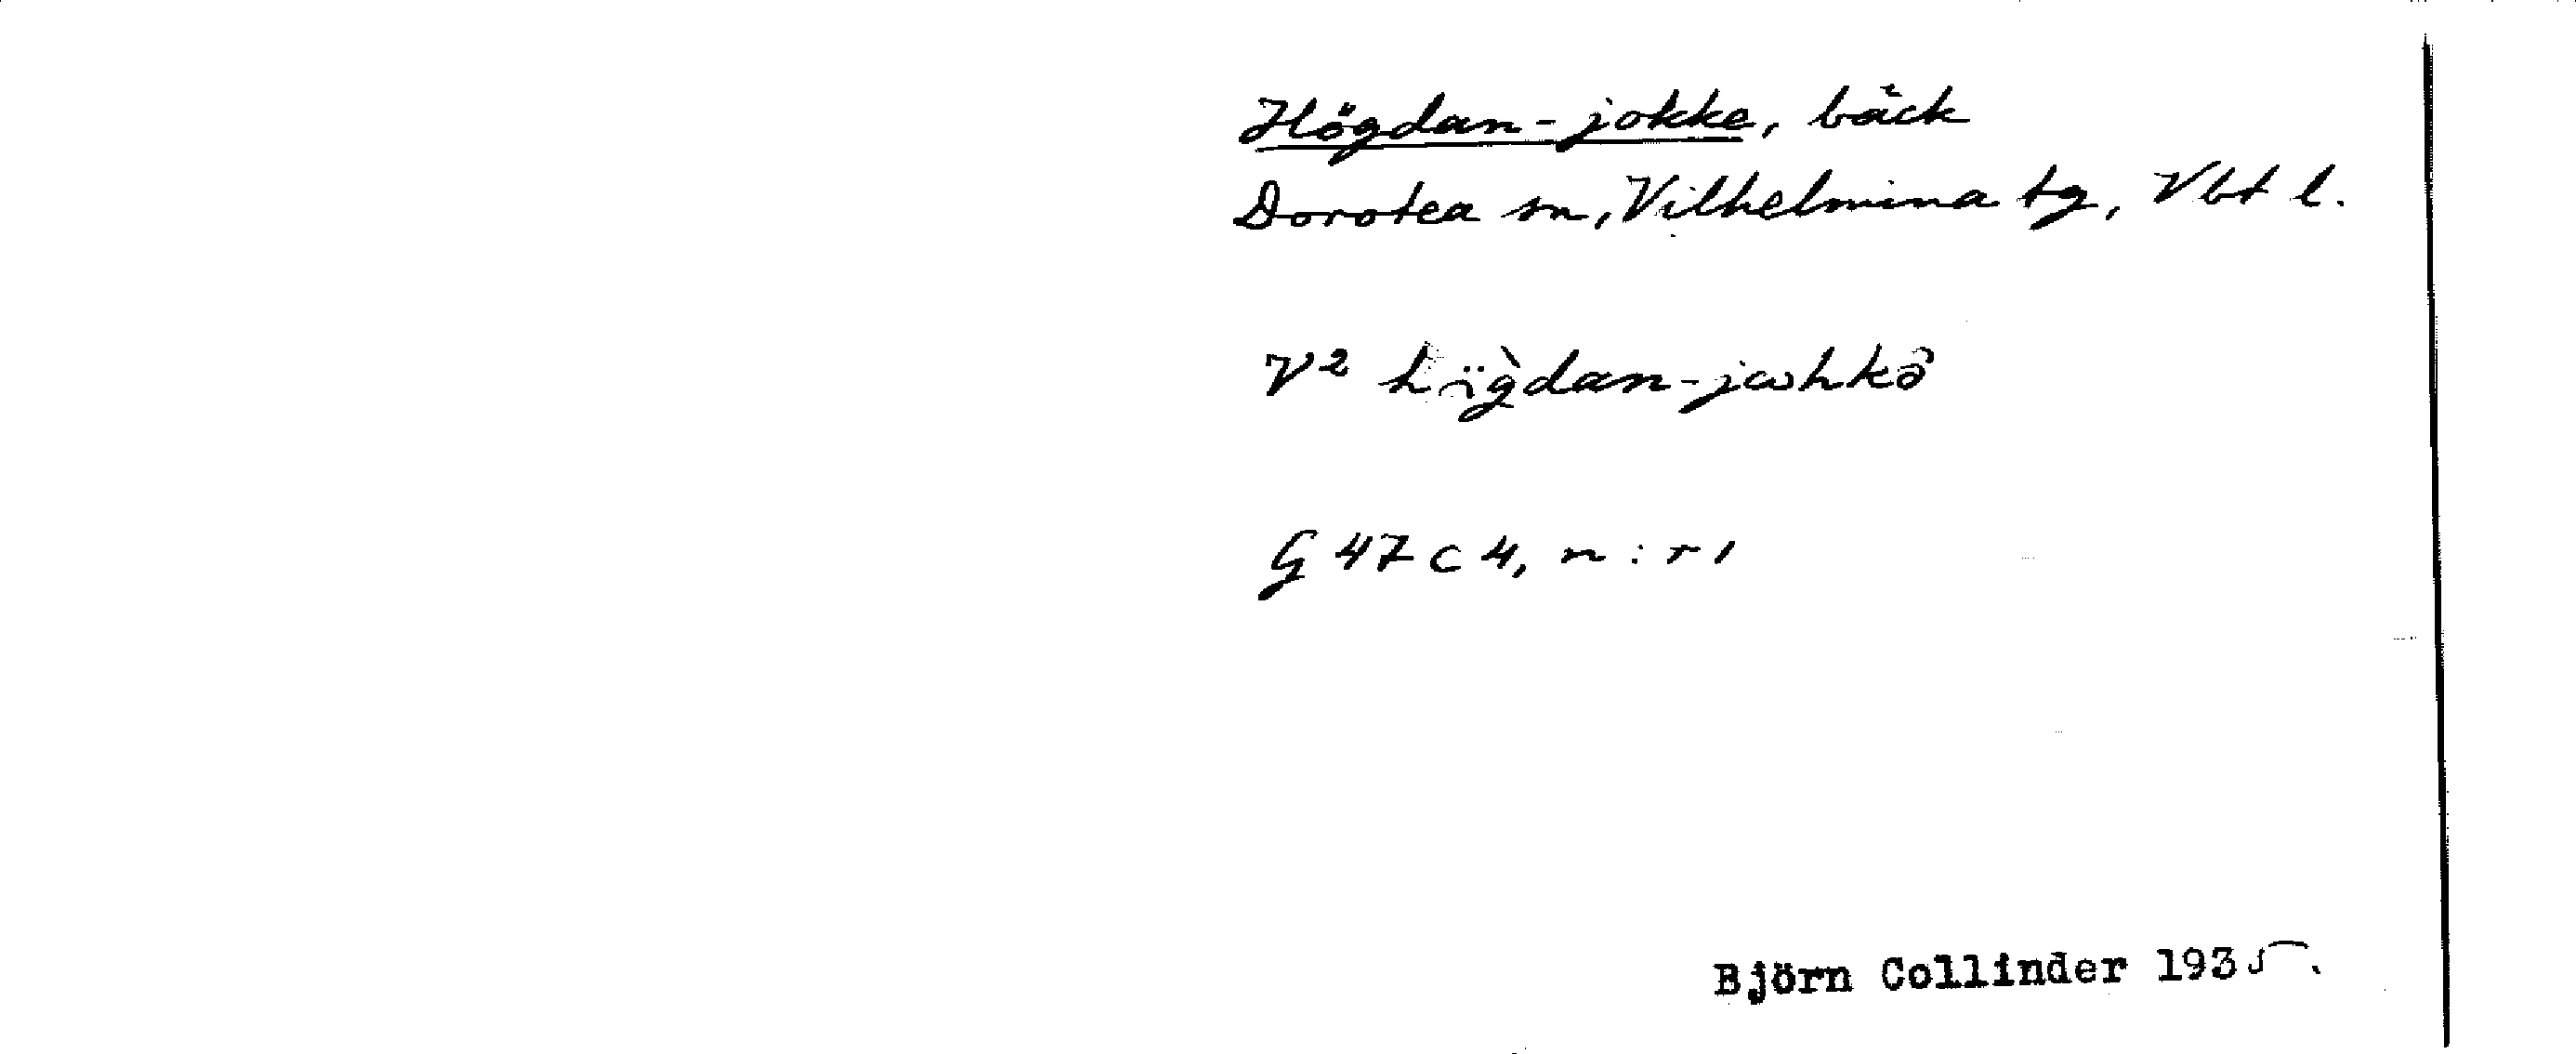 Högdan-jokke, bäck
Dorotea sn, Vilhelmina tg, Vbt l.
V²
G 47 c 4, n:r 1
Björn Collinder 1935.